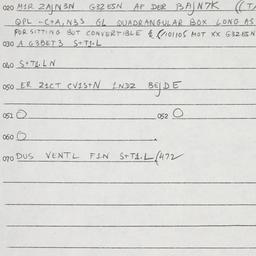 020 MIR ZAJN3N G3ZESN AP DER BAJN7K ((TA
QPL -C+A,N33 GL QUADRANGULAR BOX LONG AS
FOR SITTING BUT CONVERTIBLE & (/101105 MOT XX G3ZESN
030 A G3BET3 S+T1.L
040 S+T1.LN
050 ER 21CT CVIS+N 1ND2 BEJDE
051 O 052 O
060 O
070 DUS VENTL FIN S+T1.L(472